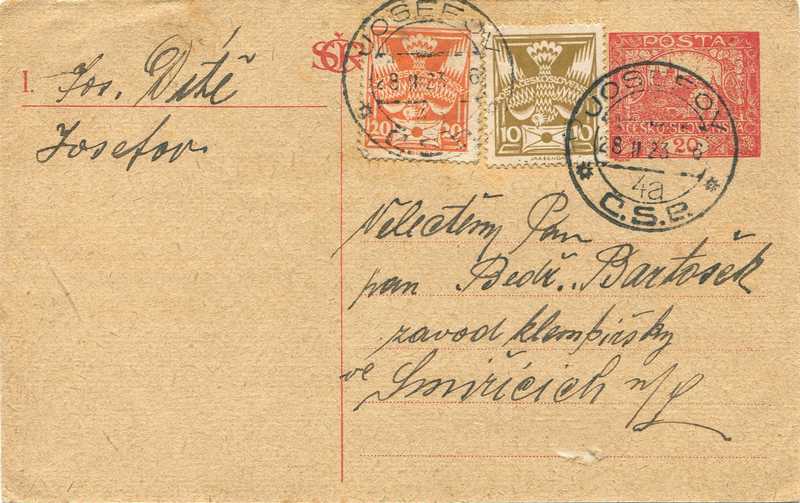 I.
Jos. Dítě
Josefov
SČR
JOSEFOV
28 II 23
20 20
ČESKOSLOVENSKO
10 10
POŠTA
ČESKOSLOVENSKÁ
20
JOSEFOV
28 II 23 - 8
4a
Č.S.P.
Velectěný Pan
pan Bedř. Bartošek
zavod klempířsky
ve Smiřicích n/L